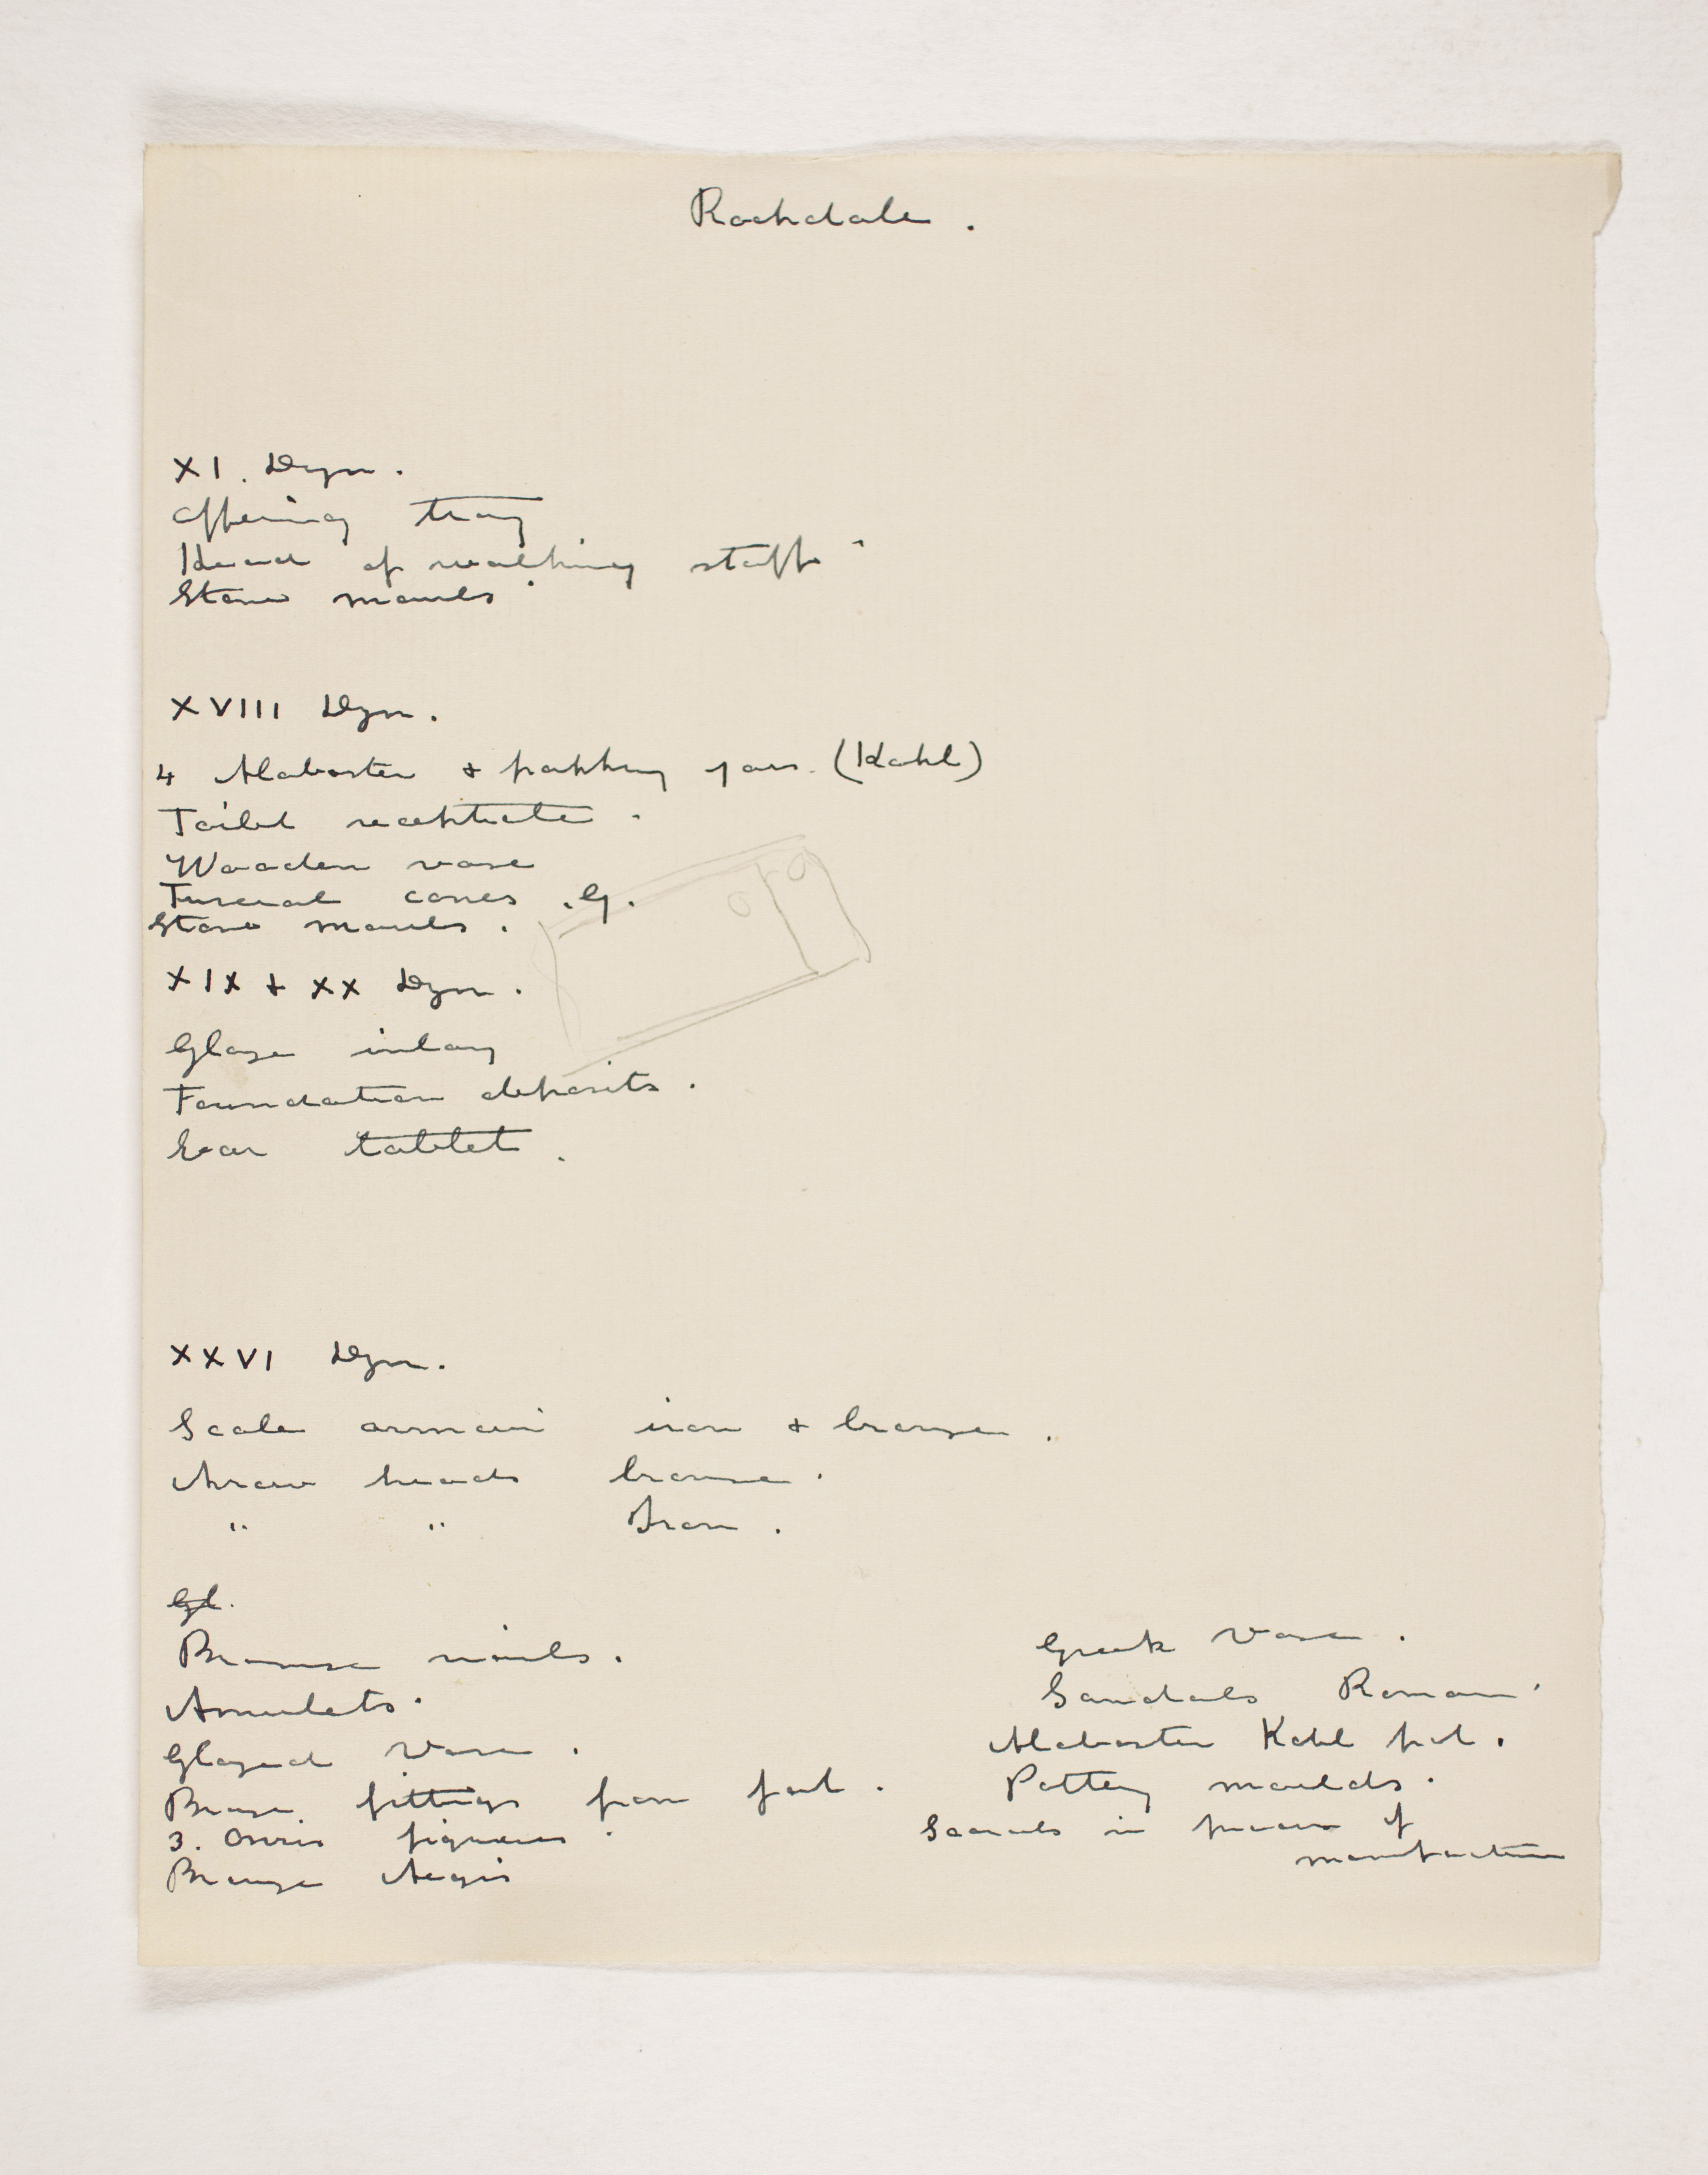 Rochdale.
XI. Dyn.
Offering tray
Head of walking staff.
Stone mauls.
XVIII Dyn.
4 Alabaster & pottery jars. (Kohl)
Toilet receptacle.
Wooden vase
Funeral cones .9.
Stone mauls.
XIX & XX Dyn.
Glaze inlay
Foundation deposits.
Ear tablet.
XXVI Dyn.
Scale armour iron & bronze.
Arrow heads bronze.
" " Iron.
Gl.
Bronze nails.
Amulets.
Glazed vase.
Bronze fittings from fort.
3. Osiris figures.
Bronze Aegis
Greek vase.
Sandals Roman.
Alabaster Kohl pot.
Pottery moulds.
Scarabs in process of
manufacture